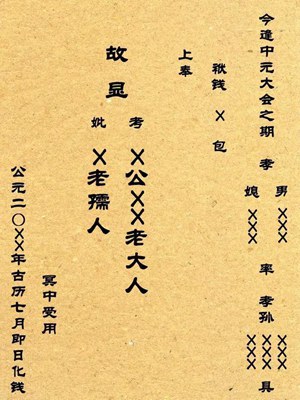 今逢中元大会之期 孝 男 XXX 媳 XXX 率 孝孙 XXX XXX 具
袱钱 X 包
上奉
故显
考 X公XX老大人
妣 X老孺人
冥中受用
公元二〇XX年古历七月即日化钱